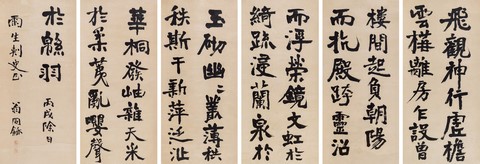 飛觀神行虛檐
雲構離房乍設曾
樓間起負朝陽
而抗殿跨靈沼
而浮榮鏡文虹於
綺疏浸蘭泉於
玉砌幽〻叢薄秩
秩斯干新萍泛沚
華桐發岫雜夭采
於柔荑亂嚶聲
於緜羽
丙戌除日
雨生刺史正
翁同龢